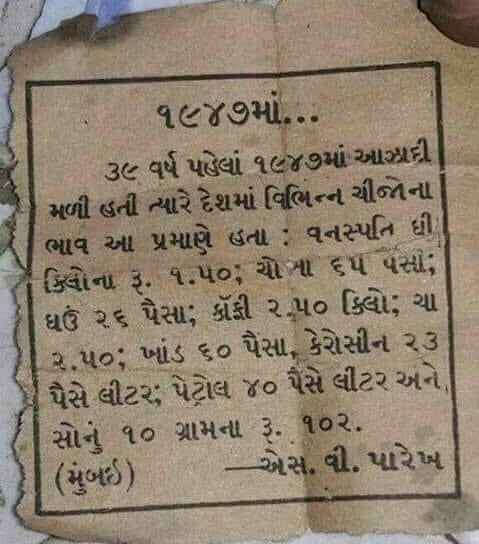 ૧૯૪૭માં...
૩૯ વર્ષ પહેલાં ૧૯૪૭માં આઝાદી
મળી હતી ત્યારે દેશમાં વિભિન્ન ચીજોના
ભાવ આ પ્રમાણે હતા : વનસ્પતિ ઘી
કિલોના રૂ. ૧.૫૦; ૬૫ પૈસા;
ઘઉં ૨૬ પૈસા; કૉફી ૨.૫૦ કિલો; ચા
૨.૫૦; ખાંડ ૬૦ પૈસા, કેરોસીન ૨૩
પૈસે લીટર; પેટ્રોલ ૪૦ પૈસે લીટર અને
સોનું ૧૦ ગ્રામના રૂ. ૧૦૨.
(મુંબઇ) —એસ. વી. પારેખ